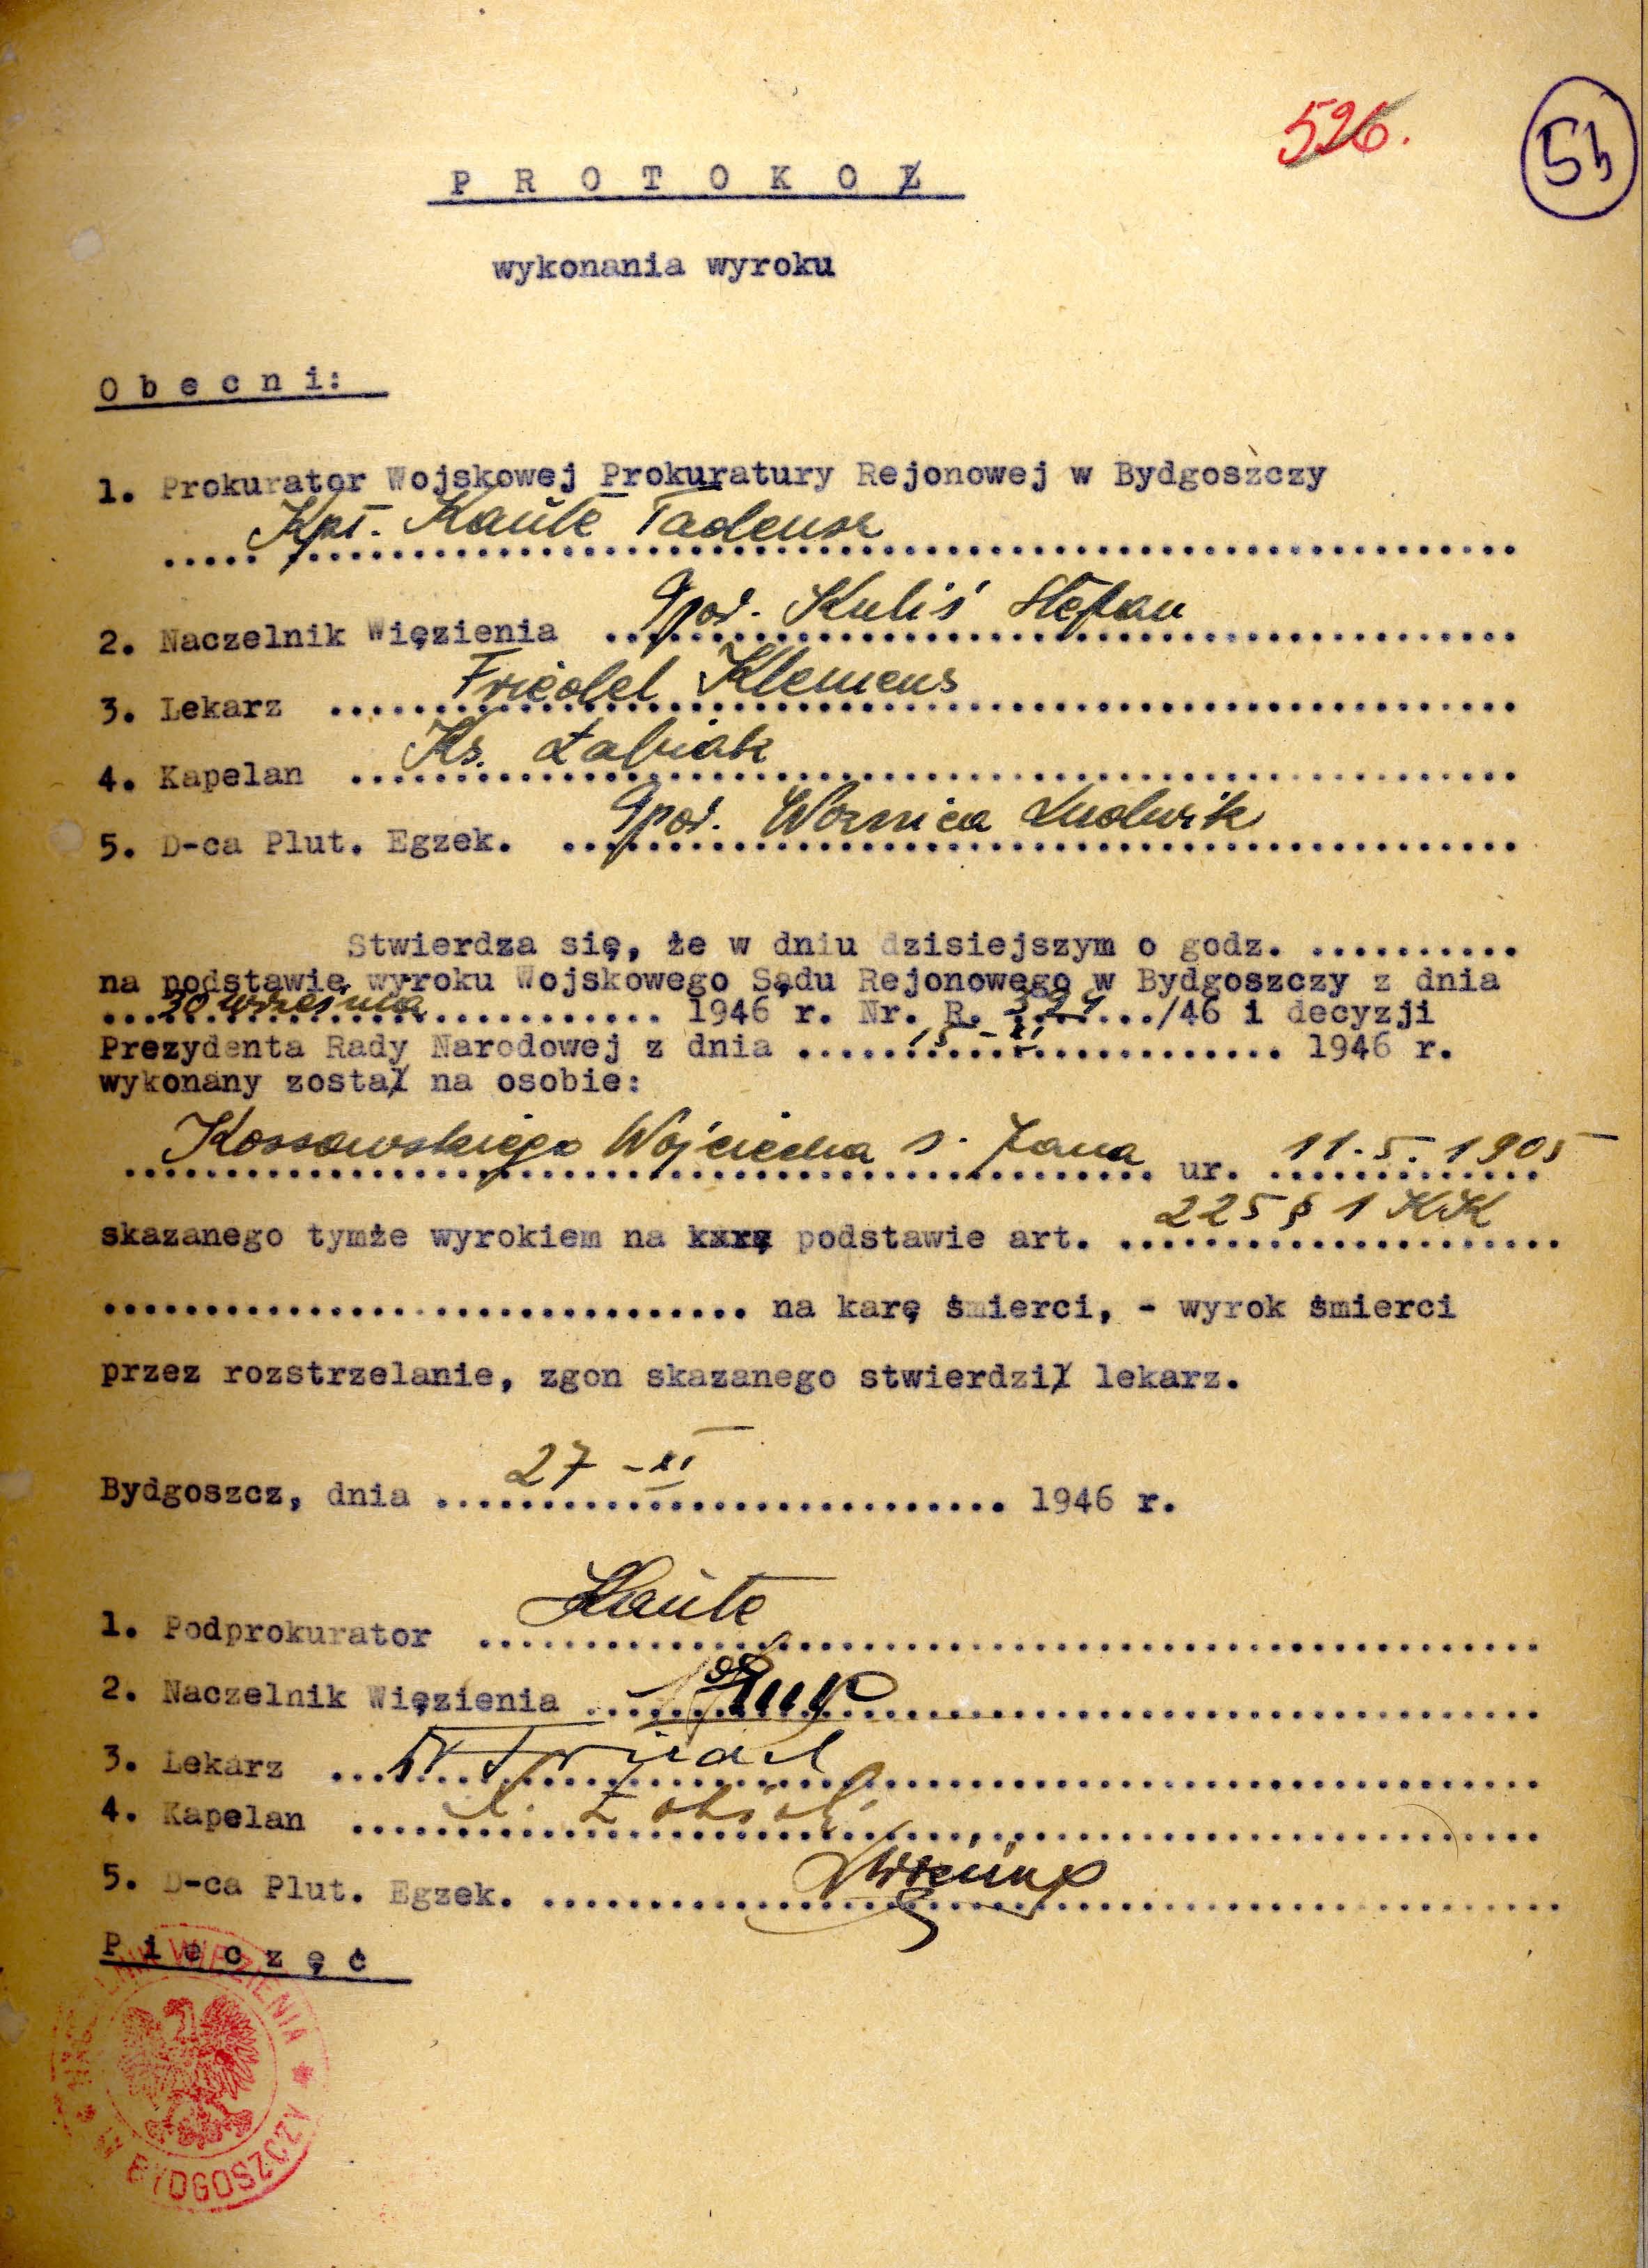 526.
P R O T O K O Ł
wykonania wyroku
O b e c n i:
1. Prokurator Wojskowej Prokuratury Rejonowej w Bydgoszczy
Kpt. Kaute Tadeusz
2. Naczelnik Więzienia Ppor. Kuliś Stefan
3. Lekarz Friedel Klemens
4. Kapelan Ks. Łabiak
5. D-ca Plut. Egzek. Ppor. Woźnica Ludwik
Stwierdza się, że w dniu dzisiejszym o godz. ..........
na podstawie wyroku Wojskowego Sądu Rejonowego w Bydgoszczy z dnia
30 września 1946 r. Nr. R. /46 i decyzji
Prezydenta Rady Narodowej z dnia 15 - XI 1946 r.
wykonany został na osobie:
Kossowskiego Wojciecha s. Jana ur. 11.5.1905
skazanego tymże wyrokiem na karę podstawie art. 225 § 1 KK
................................ na karę śmierci, - wyrok śmierci
przez rozstrzelanie, zgon skazanego stwierdził lekarz.
Bydgoszcz, dnia 27 - XI 1946 r.
1. Podprokurator Kaute
2. Naczelnik Więzienia
3. Lekarz Friedel
4. Kapelan
5. D-ca Plut. Egzek.
P i e c z ę ć
NACZELNIK WIĘZIENIA * W BYDGOSZCZY